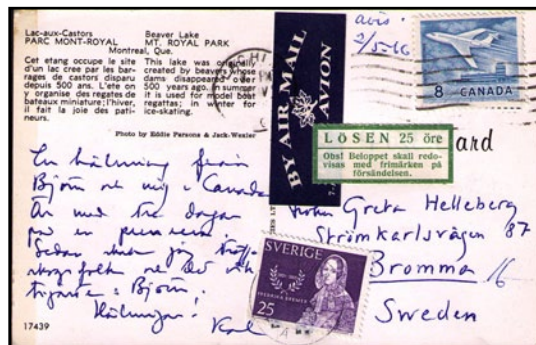 Lac-aux-Castors
PARC MONT-ROYAL
Beaver Lake
MT. ROYAL PARK
Montreal, Que.
Cet etang occupe le site
d'un lac cree par les bar-
rages de castors disparu
depuis 500 ans. L'ete on
y organise des regates de
bateaux miniature; l'hiver,
il fait la joie des pati-
neurs.
This lake was originally
created by beavers whose
dams disappeared over
500 years ago. In summer
it is used for model boat
regattas; in winter for
ice-skating.
Photo by Eddie Parsons & Jack-Wexler
BY AIR MAIL
PAR AVION
avis.
2/5-16
8 CANADA
LÖSEN 25 öre
Obs! Beloppet skall redo-
visas med frimärken på
försändelsen.
ard
En hälsning från
Björn och mig i Canada
Är med tre dagar
på en
Sedan skall jag träffa
Björn.
Hälsningar!
Karl
Greta Helleberg
Strömkarlsvägen 87
Bromma 16
Sweden
SVERIGE
FREDRIKA BREMER
25
17439